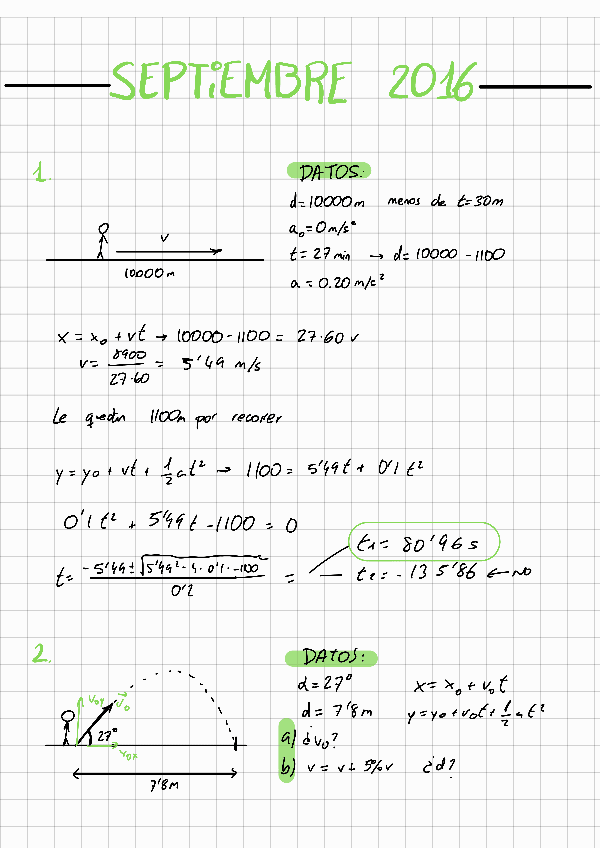 SEPTIEMBRE 2016
1.
DATOS:
d=10000m menos de t=30m
a₀=0m/s²
t=27min → d=10000-1100
a=0.20m/s²
v
10000m
x=x₀+vt → 10000-1100=27·60v
v=8900/27·60=5'49 m/s
Le quedan 1100m por recorrer
y=y₀+vt+1/2at² → 1100=5'49t+0'1t²
0'1t²+5'49t-1100=0
t=-5'49±√5'49²-4·0'1·-1100/0'2=
t₁=80'96s
t₂=-135'86 ← NO
2.
DATOS:
α=27° x=x₀+v₀t
d=7'8m y=y₀+v₀t+1/2at²
a) ¿v₀?
b) v=v+5%v ¿d?
v₀y v₀
27°
v₀x
7'8m